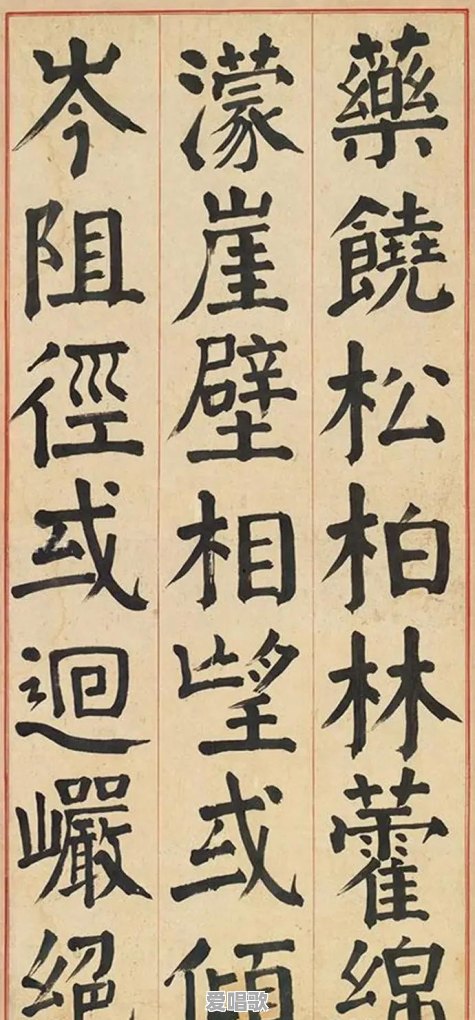 藥饒松柏林藿綿
濛崖壁相望或傾
岑阻徑或迴巖絕
爱唱歌